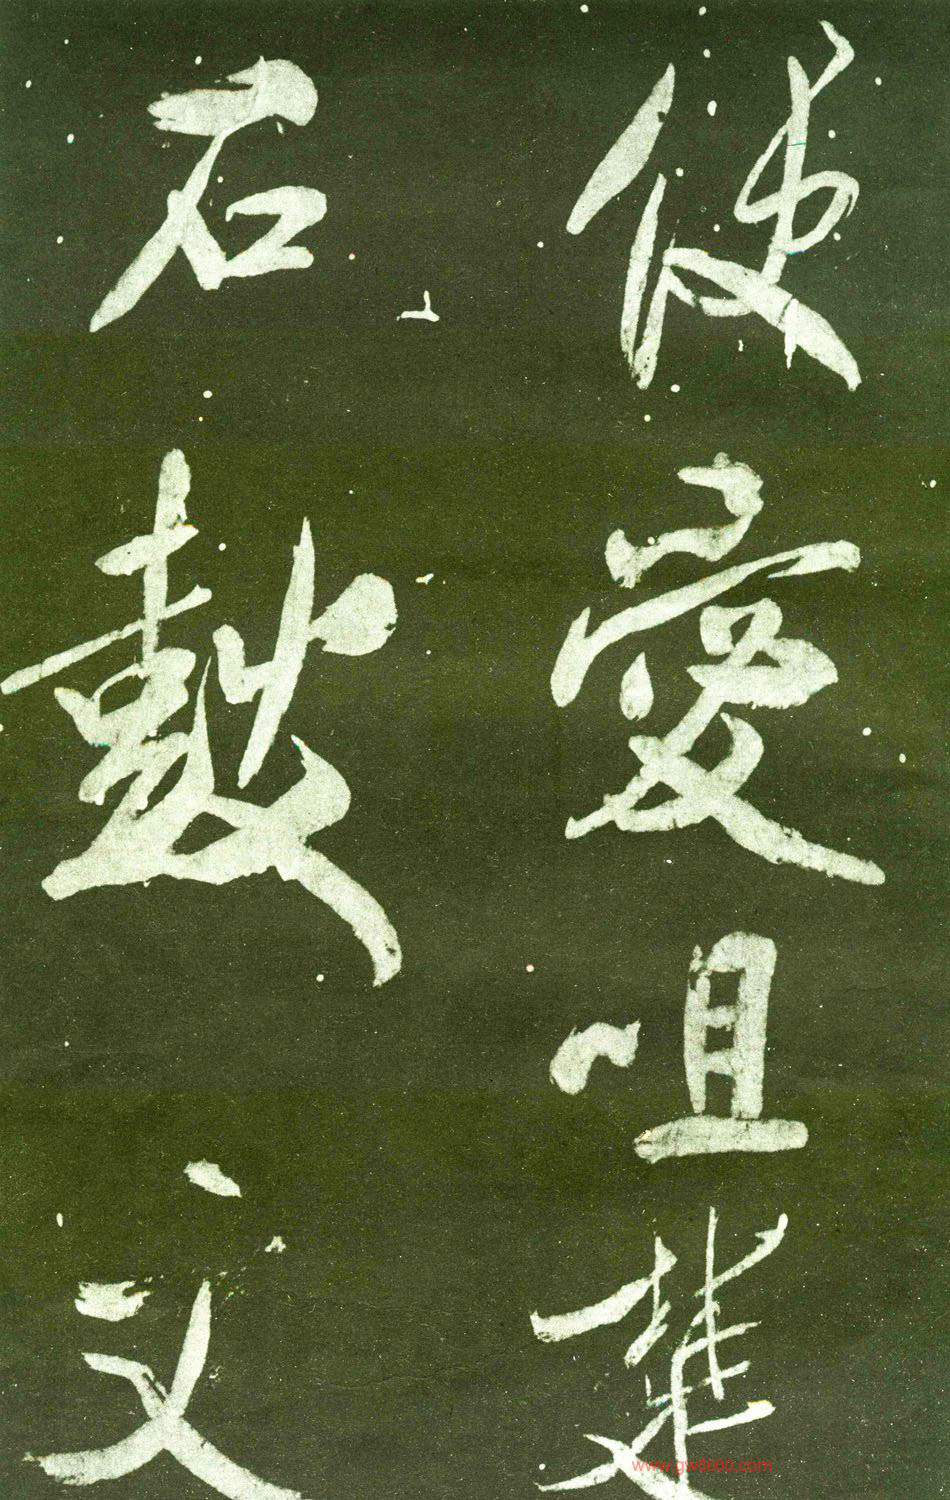 便愛咀楚
石鼓文
www.gw5000.com